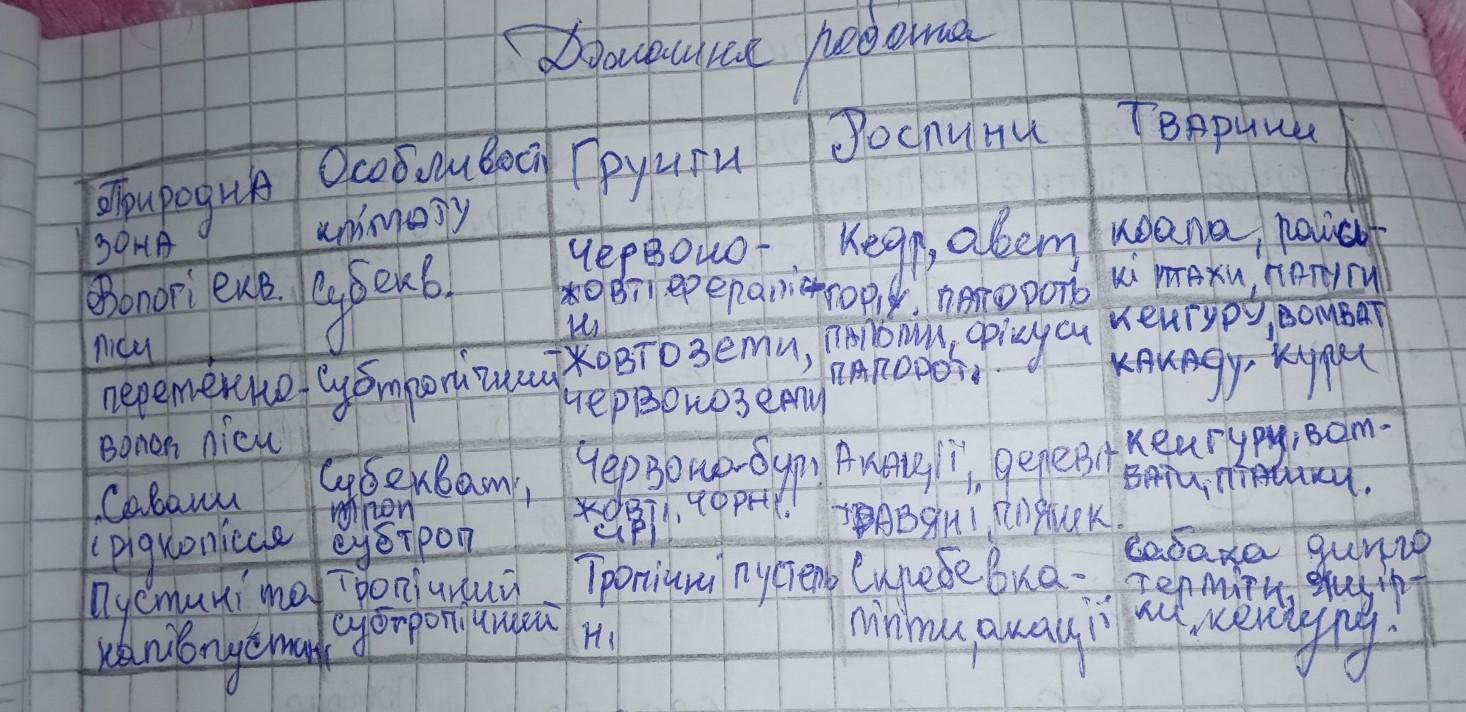 Домашня робота
Природна
зона
Особливості
клімату
Грунти
Рослини
Тварини
Вологі екв.
ліси
Субекв.
Червоно-
жовті фераліт
ні
Кедр, авст
горіх, папороть
коала, райсь-
кі птахи, папуги
перемінно-
вологі ліси
Субтропічний
Жовтоземи,
червоноземи
пальми, фікуси
папороть.
кенгуру, вомбат
какаду, кури
Савани
і рідколісся
Субекват,
троп
субтроп
Червоно-бурі
жовті, чорні.
сірі
Акації, дерева
трав'яні,
кенгуру, вом-
бати, пташки.
Пустині та
напівпустині
Тропічний
субтропічний
Тропічні пустель
ні
Скребевка-
ліпти, акації
собака динго
терміти, ящір-
ки, кенгуру.